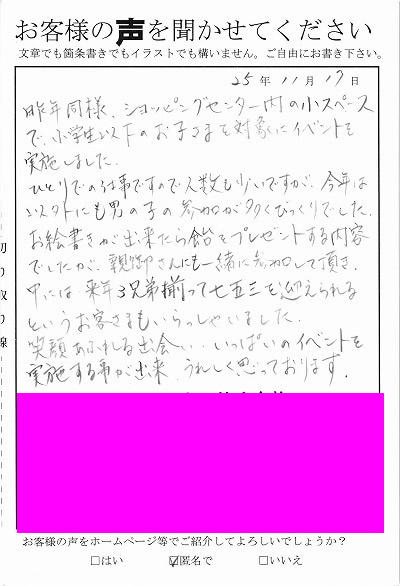 お客様の声を聞かせてください
文章でも箇条書きでもイラストでも構いません。ご自由にお書き下さい。
25年11月17日
昨年同様、ショッピングセンター内の小スペース
で、小学生以下のお子さまを対象にイベントを
実施しました。
ひとりでの仕事ですので人数も少いですが、今年は
以外にも男の子の参加が多くびっくりでした。
お絵書きが出来たら飴をプレゼントする内容
でしたが、親御さんにも一緒に参加して頂き、
中には来年3兄弟揃って七五三を迎えられる
というお客さまもいらっしゃいました。
笑顔あふれる出会い・・いっぱいのイベントを
実施する事が出来、うれしく思っております。
切り取り線
お客様の声をホームページ等でご紹介してよろしいでしょうか？
□はい ☑匿名で □いいえ